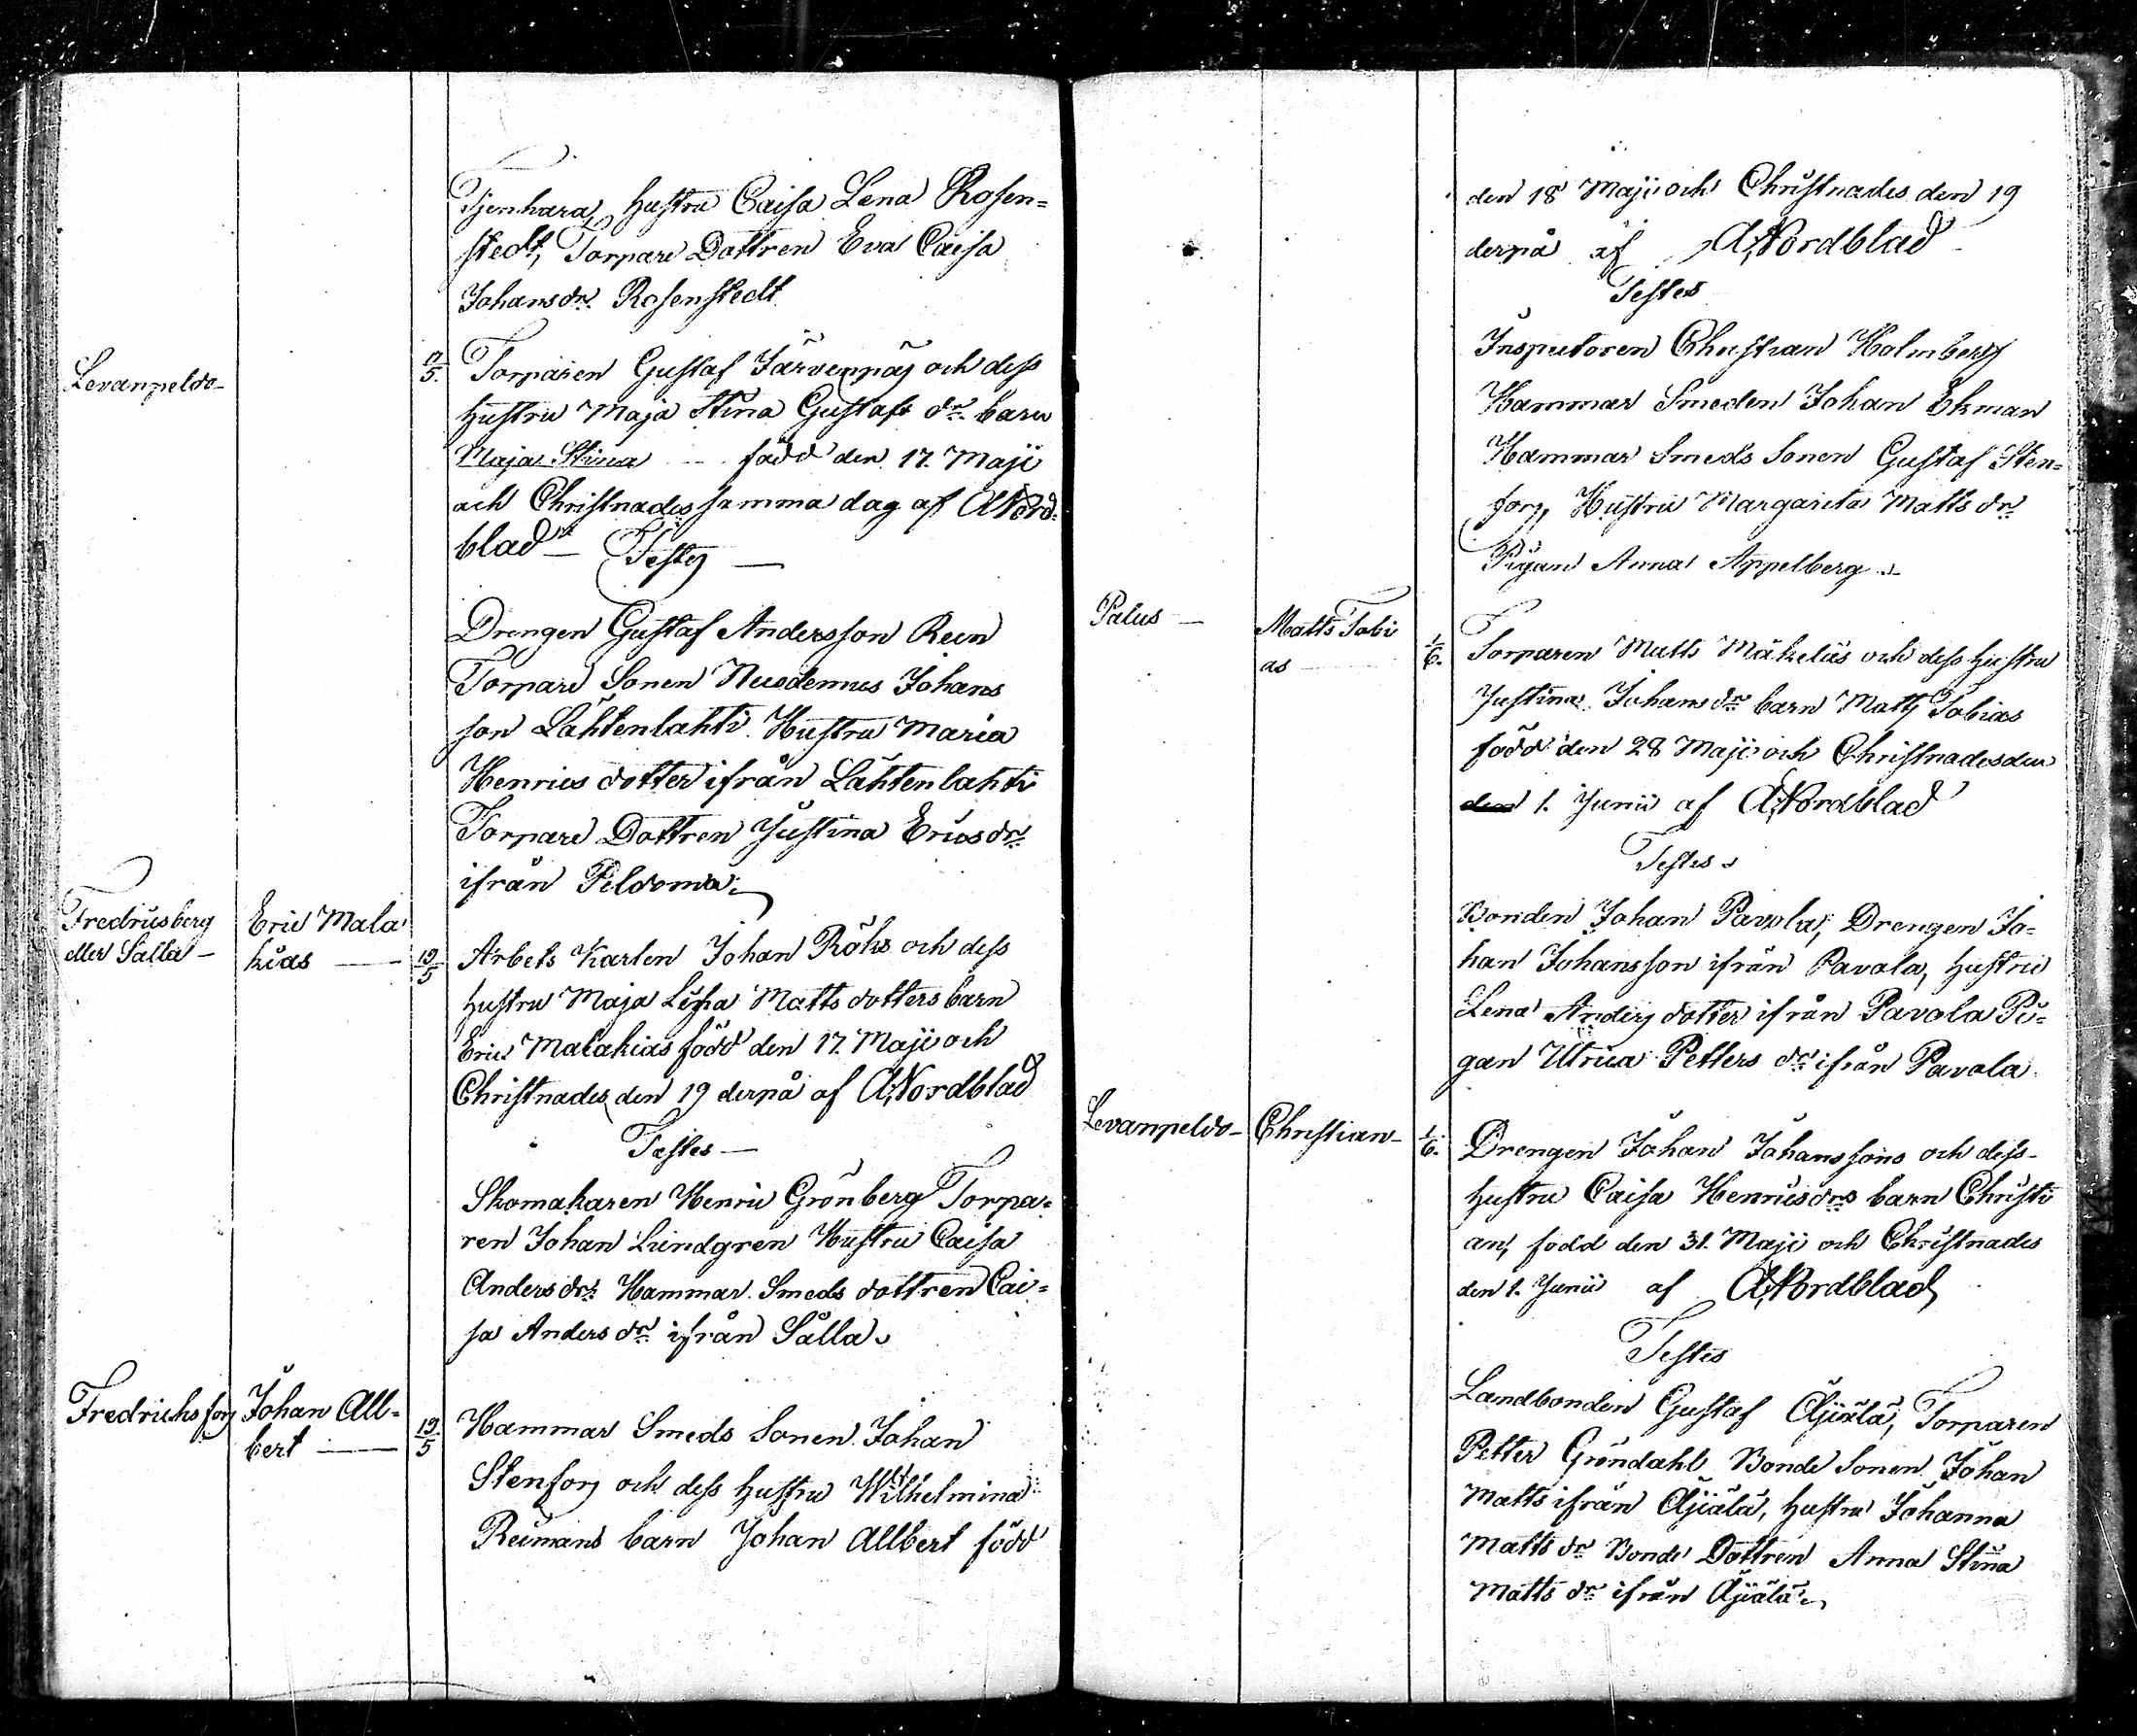 Tjenhara, hustru Caisa Lena Rosen=
stedt, Torpare Dottren Eva Caisa
Johansdr. Rosenstedt.
Levanpeldo-
17/5. Torparen Gustaf Järvenpää och dess
hustru Maja Stina Gustafs dr. barn
Maja Stina född den 17. Maji
och Christnades samma dag af A:Nord=
blad - Testes -
Drengen Gustaf Andersson Reen
Torpare Sonen Nicodemus Johans
son Lähtenlahti. Hustru Maria
Henrics dotter ifrån Lähtenlahti
Torpare Dottren Justina Ericsdr.
ifrån Peldoma.
Fredricsberg
eller Sälla -
Eric Mala
kias -
19/5 Arbets Karlen Johan Röks och dess
hustru Maja Lisa Matts dotters barn
Eric Malakias född den 17. Maji och
Christnades den 19 derpå af A:Nordblad
Testes -
Skomakaren Henric Grönberg Torpa=
ren Johan Lundgren Hustru Caisa
Anders dr. Hammar Smeds dottren Cai=
sa Anders dr. ifrån Sälla.
Fredrichs forss
Johan All=
bert -
19/5 Hammar Smeds Sonen Johan
Stenforss och dess hustru Wilhelmina
Reimans barn Johan Allbert född
den 18 Maji och Christnades den 19
derpå af A:Nordblad
Testes
Inspectoren Christian Holmberg
Hammar Smeden Johan Ekman
Hammar Smeds Sonen Gustaf Sten=
forss, Hustru Margareta Matts dr.
Pigan Anna Appelberg.
Palus -
Matts Tobi
as
1/6. Torparen Matts Mäkeläs och dess hustru
Justina Johans dr. barn Matts Tobias
född den 28 Maji och Christnades den
den 1. Junii af A:Nordblad
Testes
Bonden Johan Pavola, Drengen Jo=
han Johansson ifrån Pavola, hustru
Lena Anders dotter ifrån Pavola Pi=
gan Ulrica Petters dr. ifrån Pavola.
Levanpeldo-
Christian-
1/6. Drengen Johan Johanssons och dess
hustru Caisa Henricsdrs barn Christi
an, född den 31. Maji och Christnades
den 1. Junii af A:Nordblad
Testes
Landbonden Gustaf Äijälä, Torparen
Petter Gröndahl Bonde Sonen Johan
Matts ifrån Äijälä, hustru Johanna
Matts dr. Bonde Dottren Anna Stina
Matts dr. ifrån Äijälä.